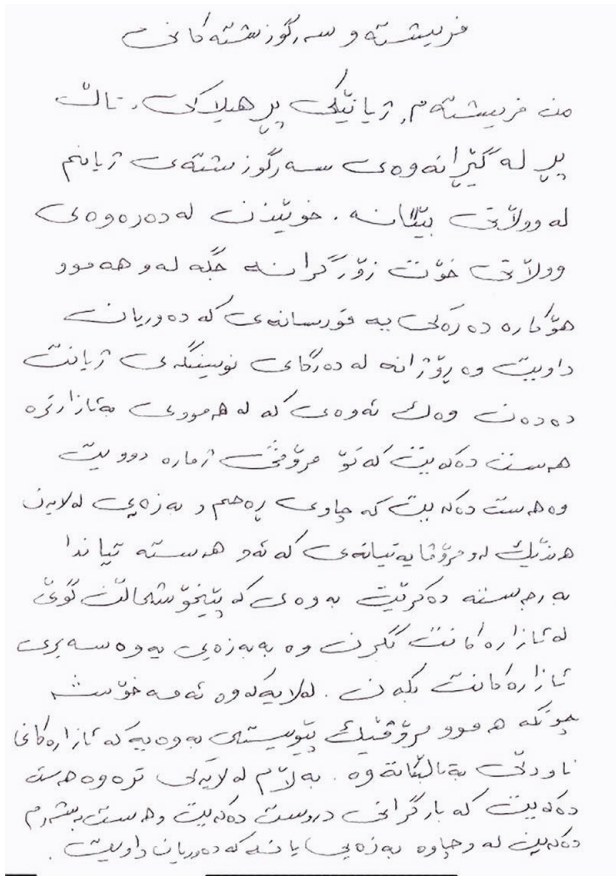 فریشتە و سەرگوزشتەکانی
من فریشتەم, ژیانێکی پڕ هیلاکی, تاڵ
پڕ لە گێڕانەوەی سەرگوزشتەی ژیانم
لە وولاتی بێگانە. خوێندن لە دەرەوەی
وولاتی خۆت زۆر گرانە جگە لەو هەموو
هۆکارە دەرەکی یە قورسانەی کە دەوریان
داویت وە ڕۆژانە لە دەرگای نوسینگەی ژیانت
دەدەن وەک ئەوەی کە لە هەمووی بەئازارترە
هەست دەکەیت کە تۆ مرۆڤی ژمارە دوویت
وە هەست دەکەیت کە چاوی ڕەحم و بەزەیی لەلایەن
هەندێک لەو مرۆڤایەتیانەی کە ئەو هەستە تیاندا
بەرجەستە دەکرێت بەوەی کە پێیخۆشحاڵن گوێ
لە ئازارەکانت بگرن وە بەبەزەیی یەوە سەیری
ئازارەکانت بکەن. لەلایەکەوە ئەمە خۆشە
چونکە هەموو مرۆڤێک پێویستی بەوەیە کە ئازارەکانی
ناودڵی بەتاڵبکاتەوە. بەڵام لەلایەکی ترەوە هەست
دەکەیت کە بارگرانی دروست دەکەیت وهەست بەشەرم
دەکەیت لەو چاوە بەزەیی یانە کە دەوریان داویت.